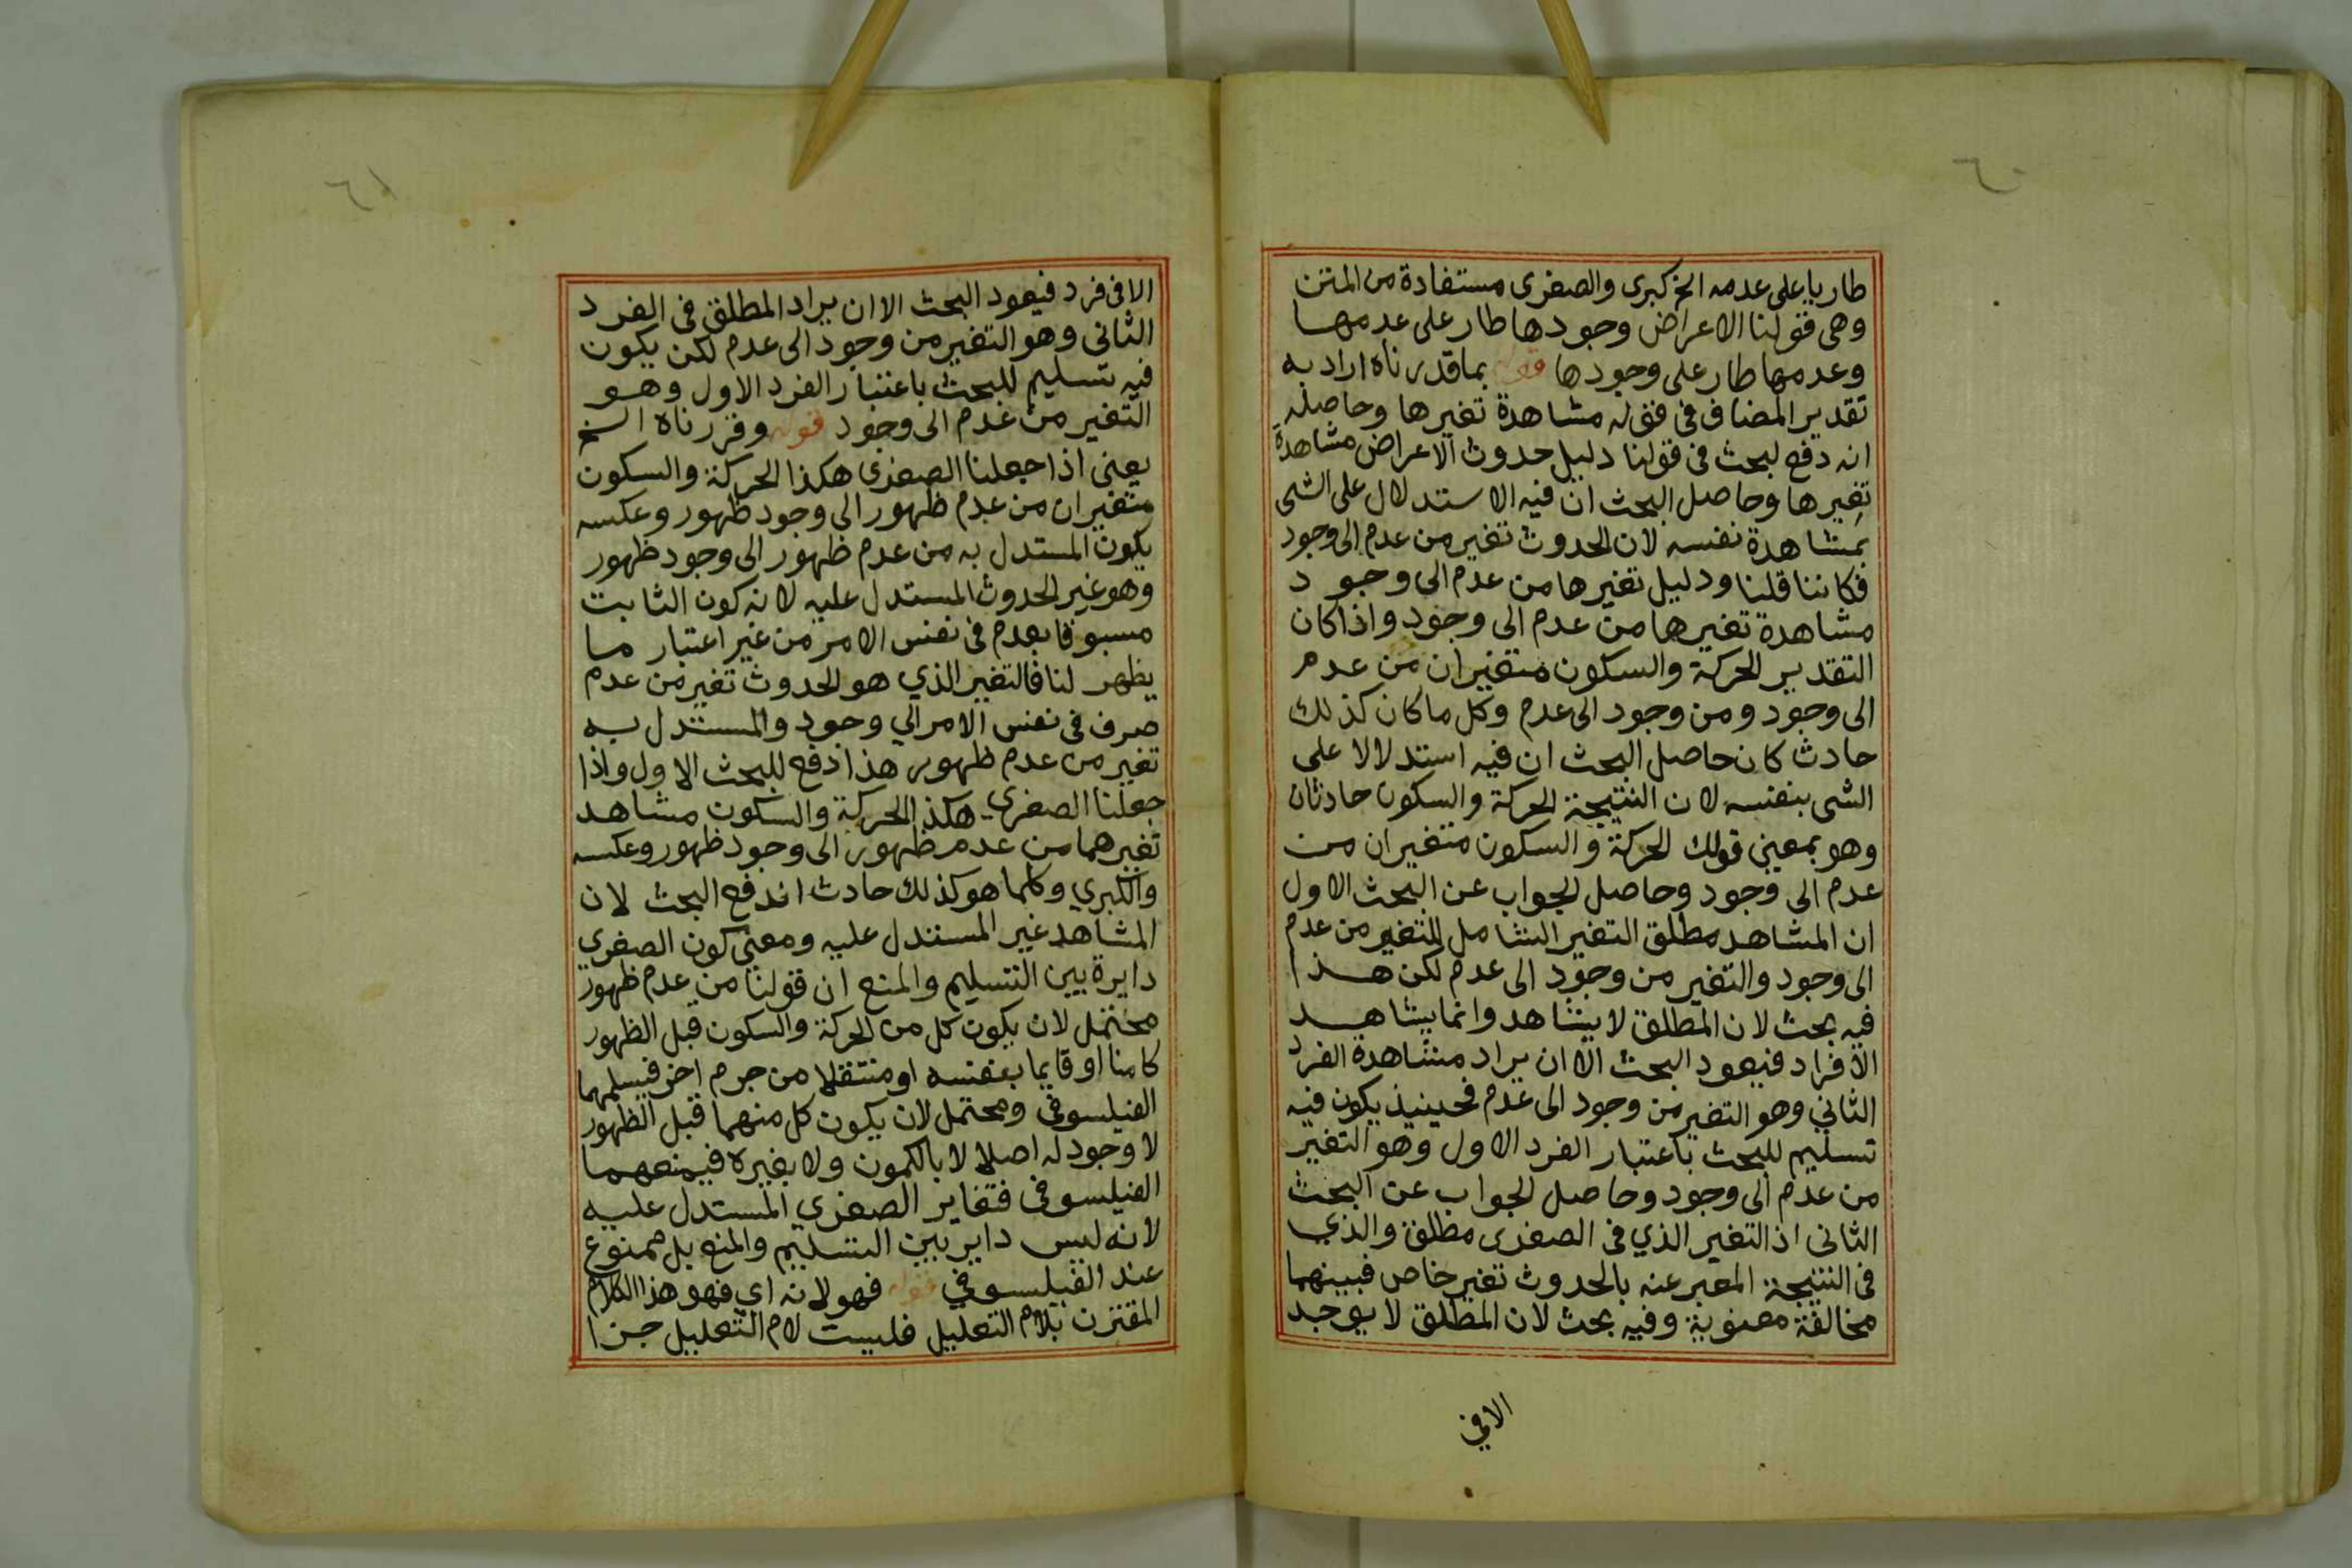 ٦٠
طاريا على عدمه الخ كبرى والصغرى مستفادة من المتن
وهى فقولنا الاعراض وجودها طار على عدمها
وعدمها طار على وجودها قوله بما قدرناه اراد به
تقدير المضاف فى قوله مشاهدة تغيرها وحاصله
انه دفع لبحث فى قولنا دليل حدوث الاعراض مشاهدة
تغيرها وحاصل البحث ان فيه الاستدلال على الشى
بمشاهدة نفسه لان الحدوث تغير من عدم الى وجود
فكاننا قلنا ودليل تغيرها من عدم الى وجود
مشاهدة تغيرها من عدم الى وجود واذا كان
التقدير الحركة والسكون متغيران من عدم
الى وجود ومن وجود الى عدم وكل ما كان كذلك
حادث كان حاصل البحث ان فيه استدلالا على
الشى بنفسه لان النتيجة الحركة والسكون حادثان
وهو بمعنى قولك الحركة والسكون متغيران من
عدم الى وجود وحاصل الجواب عن البحث الاول
ان المشاهد مطلق التغير الشامل للتغير من عدم
الى وجود والتغير من وجود الى عدم لكن هذا
فيه بحث لان المطلق لا يشاهد وانما يشاهد
الافراد فيعود البحث الا ان يراد مشاهدة الفرد
الثاني وهو التغير من وجود الى عدم فحينيذ يكون فيه
تسليم للبحث باعتبار الفرد الاول وهو التغير
من عدم الى وجود وحاصل الجواب عن البحث
الثانى اذ التغير الذي فى الصغرى مطلق والذي
فى النتيجة المعبر عنه بالحدوث تغير خاص فبينهما
مخالفة معنوية وفيه بحث لان المطلق لا يوجد
الافي
٦١
الا فى فرد فيعود البحث الا ان يراد المطلق فى الفرد
الثانى وهو التغير من وجود الى عدم لكن يكون
فيه تسليم للبحث باعتبار الفرد الاول وهو
التغير من عدم الى وجود قوله وقررناه الخ
يعنى اذا جعلنا الصغرى هكذا الحركة والسكون
متغيران من عدم ظهور الى وجود ظهور وعكسه
يكون المستدل به من عدم ظهور الى وجود ظهور
وهو غير الحدوث المستدل عليه لانه كون الثابت
مسبوقا بعدم فى نفس الامر من غير اعتبار ما
يظهر لنا فالتغير الذي هو الحدوث تغير من عدم
صرف فى نفس الامر الي وجود والمستدل به
تغير من عدم ظهور هذا دفع للبحث الاول واذا
جعلنا الصغري هكذا الحركة والسكون مشاهد
تغيرهما من عدم ظهور الى وجود ظهور وعكسه
والكبري وكلما هو كذلك حادث اندفع البحث لان
المشاهد غير المستدل عليه ومعنى كون الصغري
دايرة بين التسليم والمنع ان قولنا من عدم ظهور
محتمل لان يكون كل من الحركة والسكون قبل الظهور
كامنا او قايما بنفسه او منتقلا من جرم اخر فيسلمها
الفيلسوفى ومحتمل لان يكون كل منهما قبل الظهور
لا وجود له اصلا لا بالكمون ولا بغيره فيمنعهما
الفيلسوفى فتغاير الصغري المستدل عليه
لانه ليس داير بين التسليم والمنع بل ممنوع
عند الفيلسوفي قوله فهو لانه اي فهو هذا الكلام
المقترن بلام التعليل فليست لام التعليل جزا